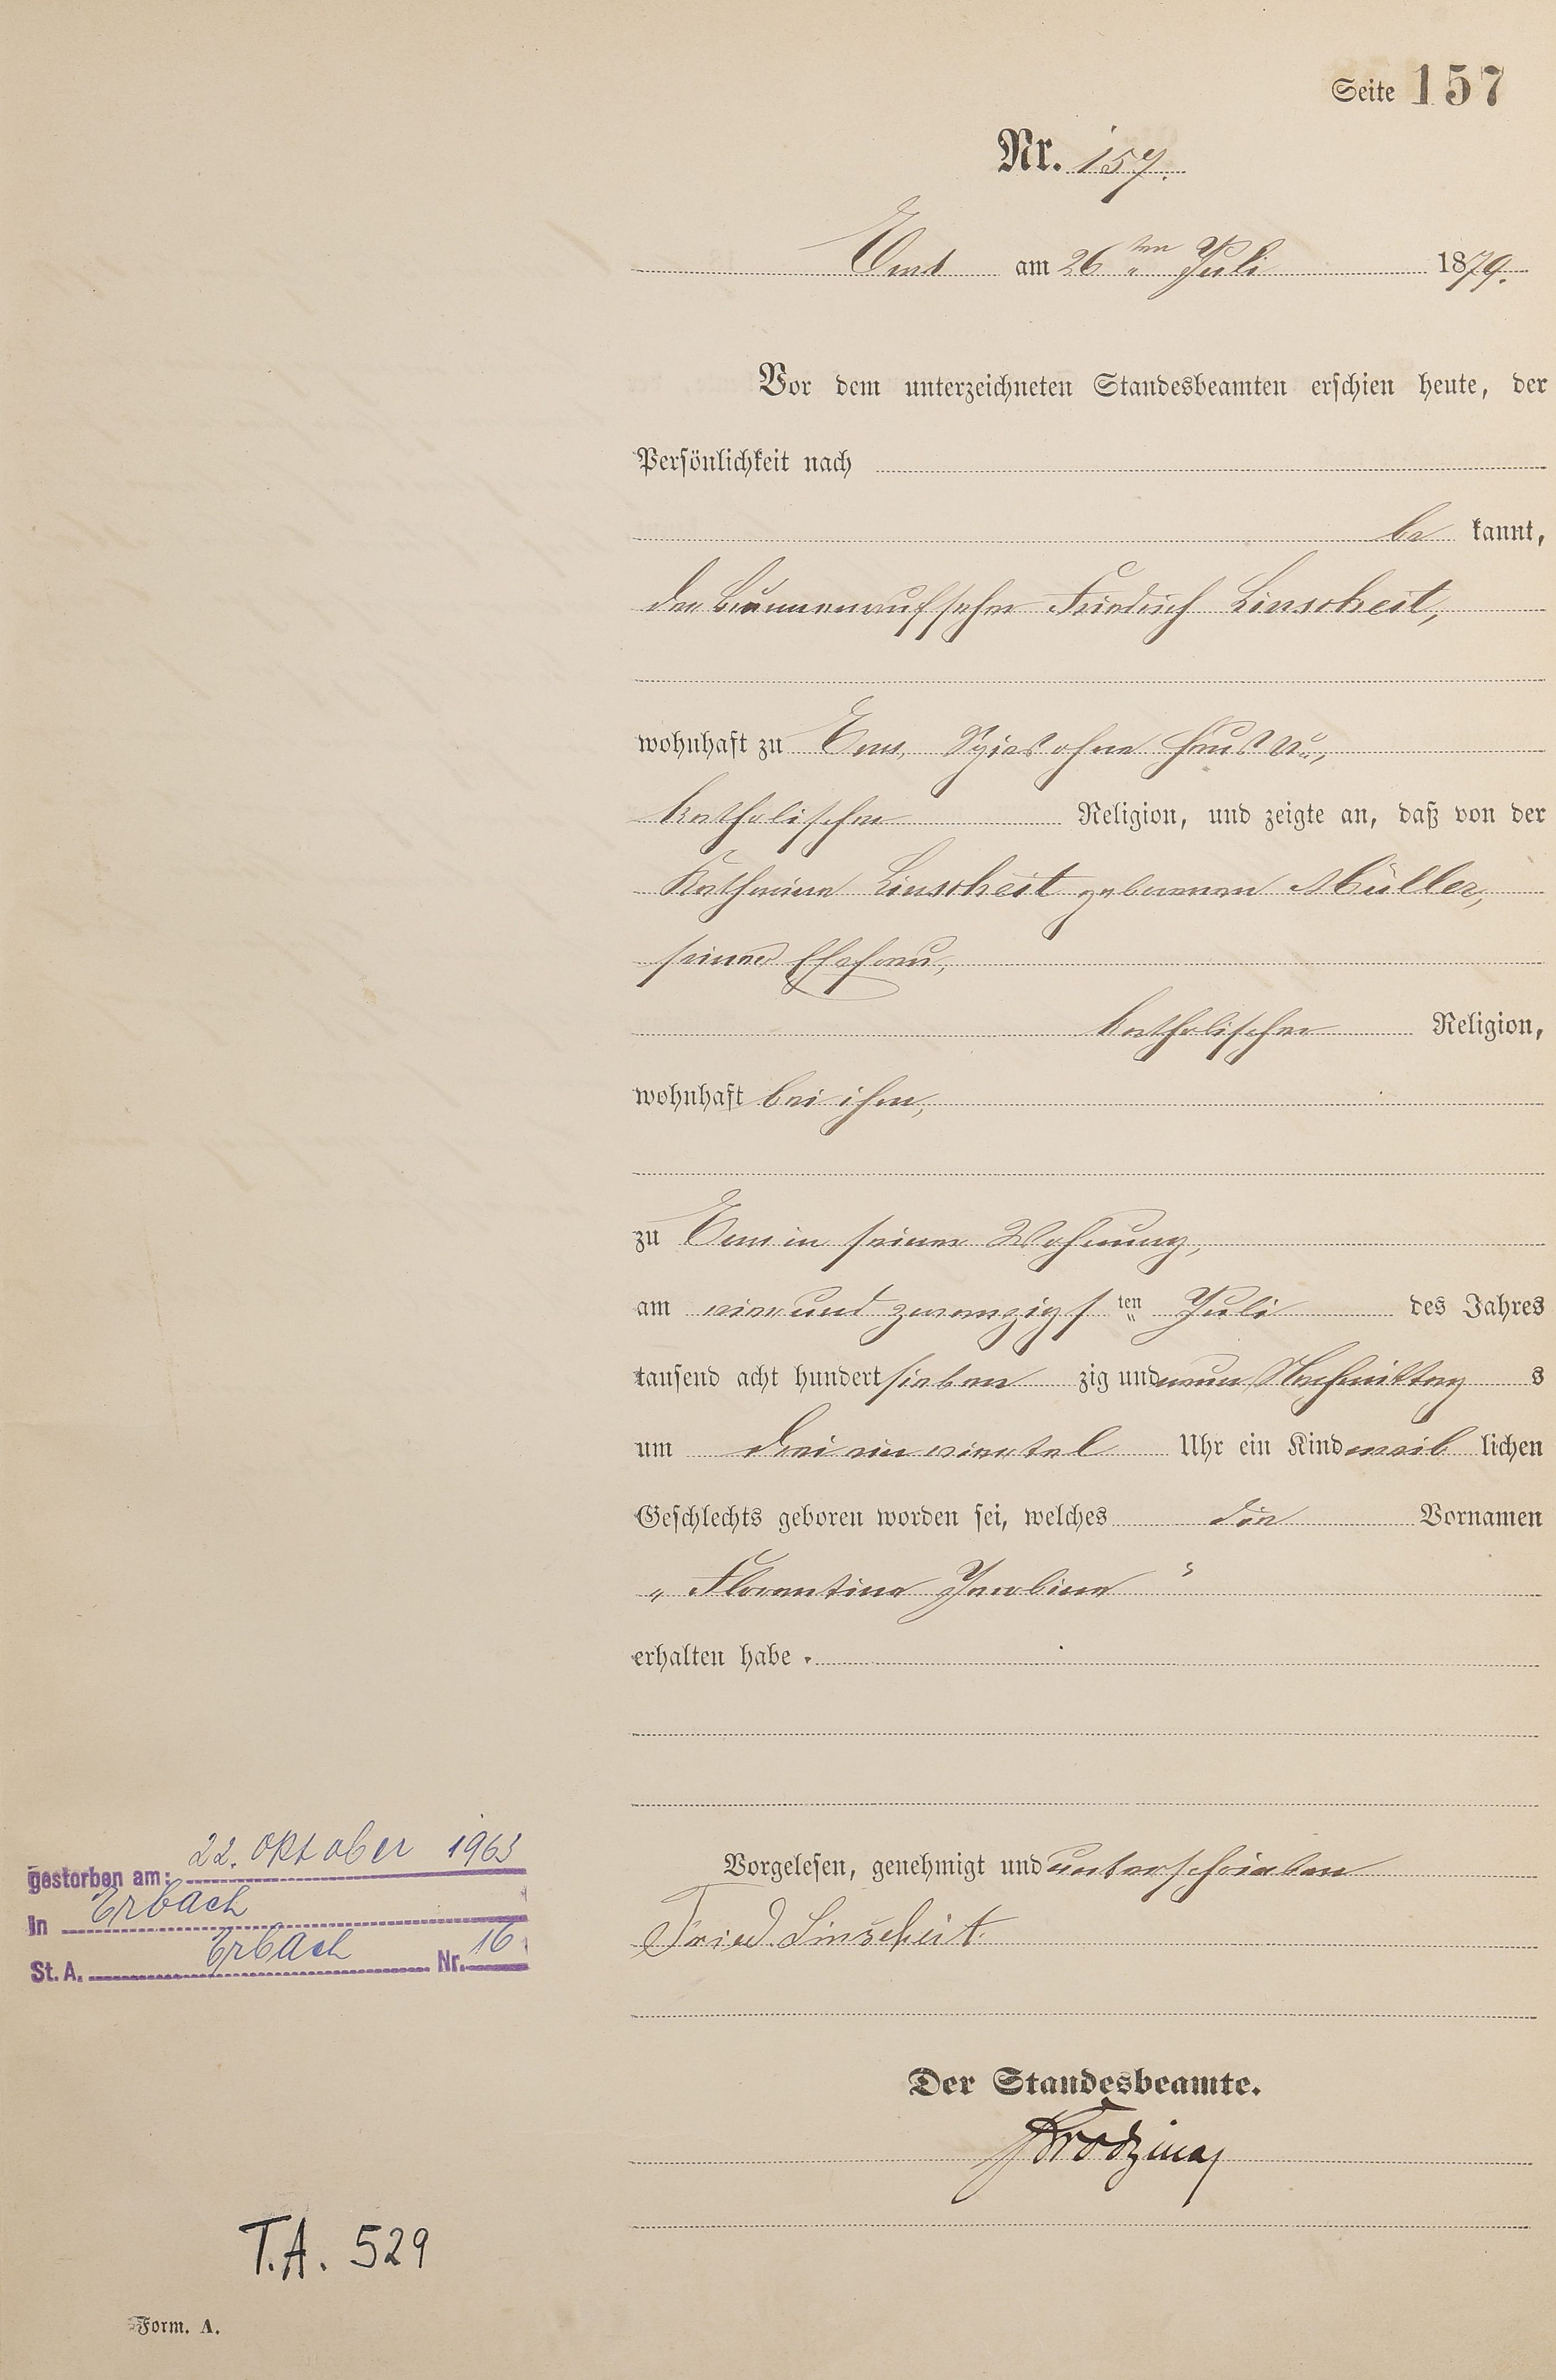 Seite 157
Nr. 157.
Ems am 26 ten Juli 1879.
Vor dem unterzeichneten Standesbeamten erschien heute, der
Persönlichkeit nach
be kannt,
der Brunnenaufseher Friedrich Linscheit,
wohnhaft zu Ems, Spies ohne Haus No,
katholischer Religion, und zeigte an, daß von der
Katharina Linscheit geborenen Müller,
seiner Ehefrau,
katholischer Religion,
wohnhaft bei ihm,
zu Ems in seiner Wohnung,
am vier und zwanzigs ten Juli des Jahres
tausend acht hundert sieben zig und neun Nachmittag s
um drei ein viertel Uhr ein Kind weib lichen
Geschlechts geboren worden sei, welches die Vornamen
„ Florentine Jacobine "
erhalten habe.
Vorgelesen, genehmigt und unterschrieben
Fried. Linscheit.
Der Standesbeamte.
gestorben am: 22. Oktober 1963
in Erbach
St. A. Erbach Nr. 16
T.A. 529
Form. A.